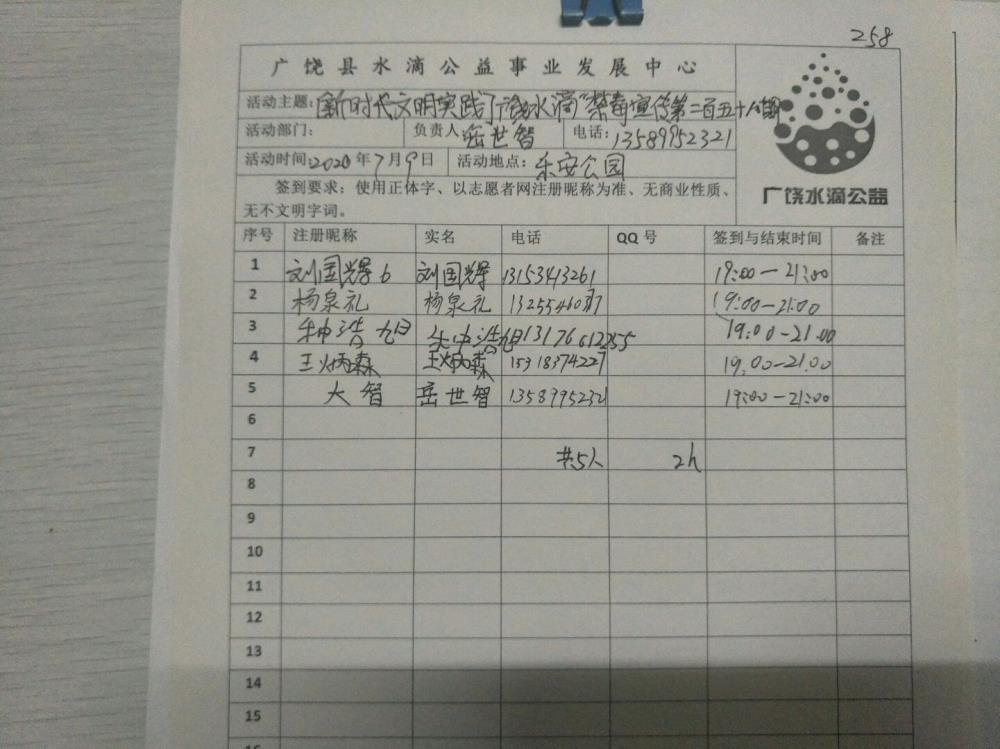 258
广饶县水滴公益事业发展中心
活动主题：新时代文明实践广饶水滴"禁毒宣传第二百五十八期
活动部门： 负责人 岳世智 电话：13589952321
活动时间：2020年7月9日 活动地点：乐安公园
签到要求：使用正体字、以志愿者网注册昵称为准、无商业性质、
无不文明字词。
广饶水滴公益
序号 注册昵称 实名 电话 QQ号 签到与结束时间 备注
1 刘国辉6 刘国辉 13153413261 19:00—21:00
2 杨泉礼 杨泉礼 19:00—21:00
3 19:00—21:00
4 王炳森 王炳森 15318374227 19:00—21:00
5 大智 岳世智 13589952321 19:00—21:00
6
7 共5人 2h
8
9
10
11
12
13
14
15
16